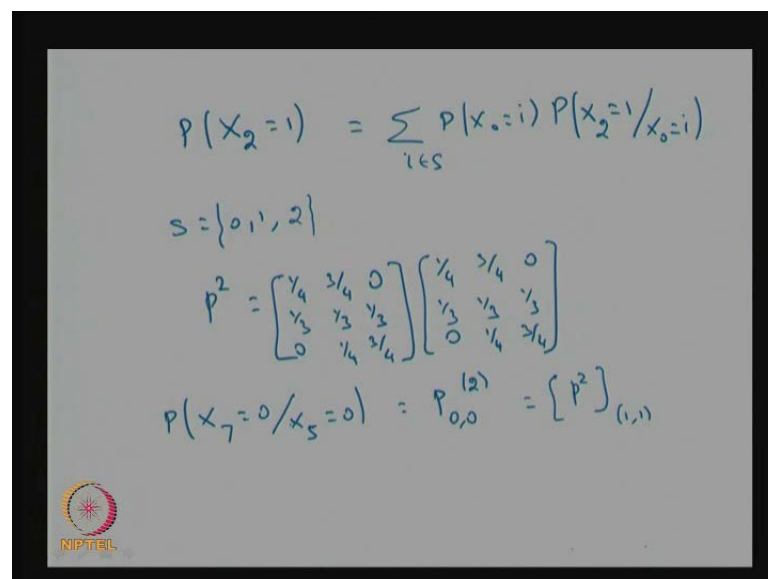 P(X₂=1) = Σ_{i∈S} P(X₀=i) P(X₂=1/X₀=i)
S={0,1,2}
P² = [1/4 3/4 0; 1/3 1/3 1/3; 0 1/4 3/4] [1/4 3/4 0; 1/3 1/3 1/3; 0 1/4 3/4]
P(X₇=0/X₅=0) = P₀,₀⁽²⁾ = [P²]₍₁,₁₎
NPTEL